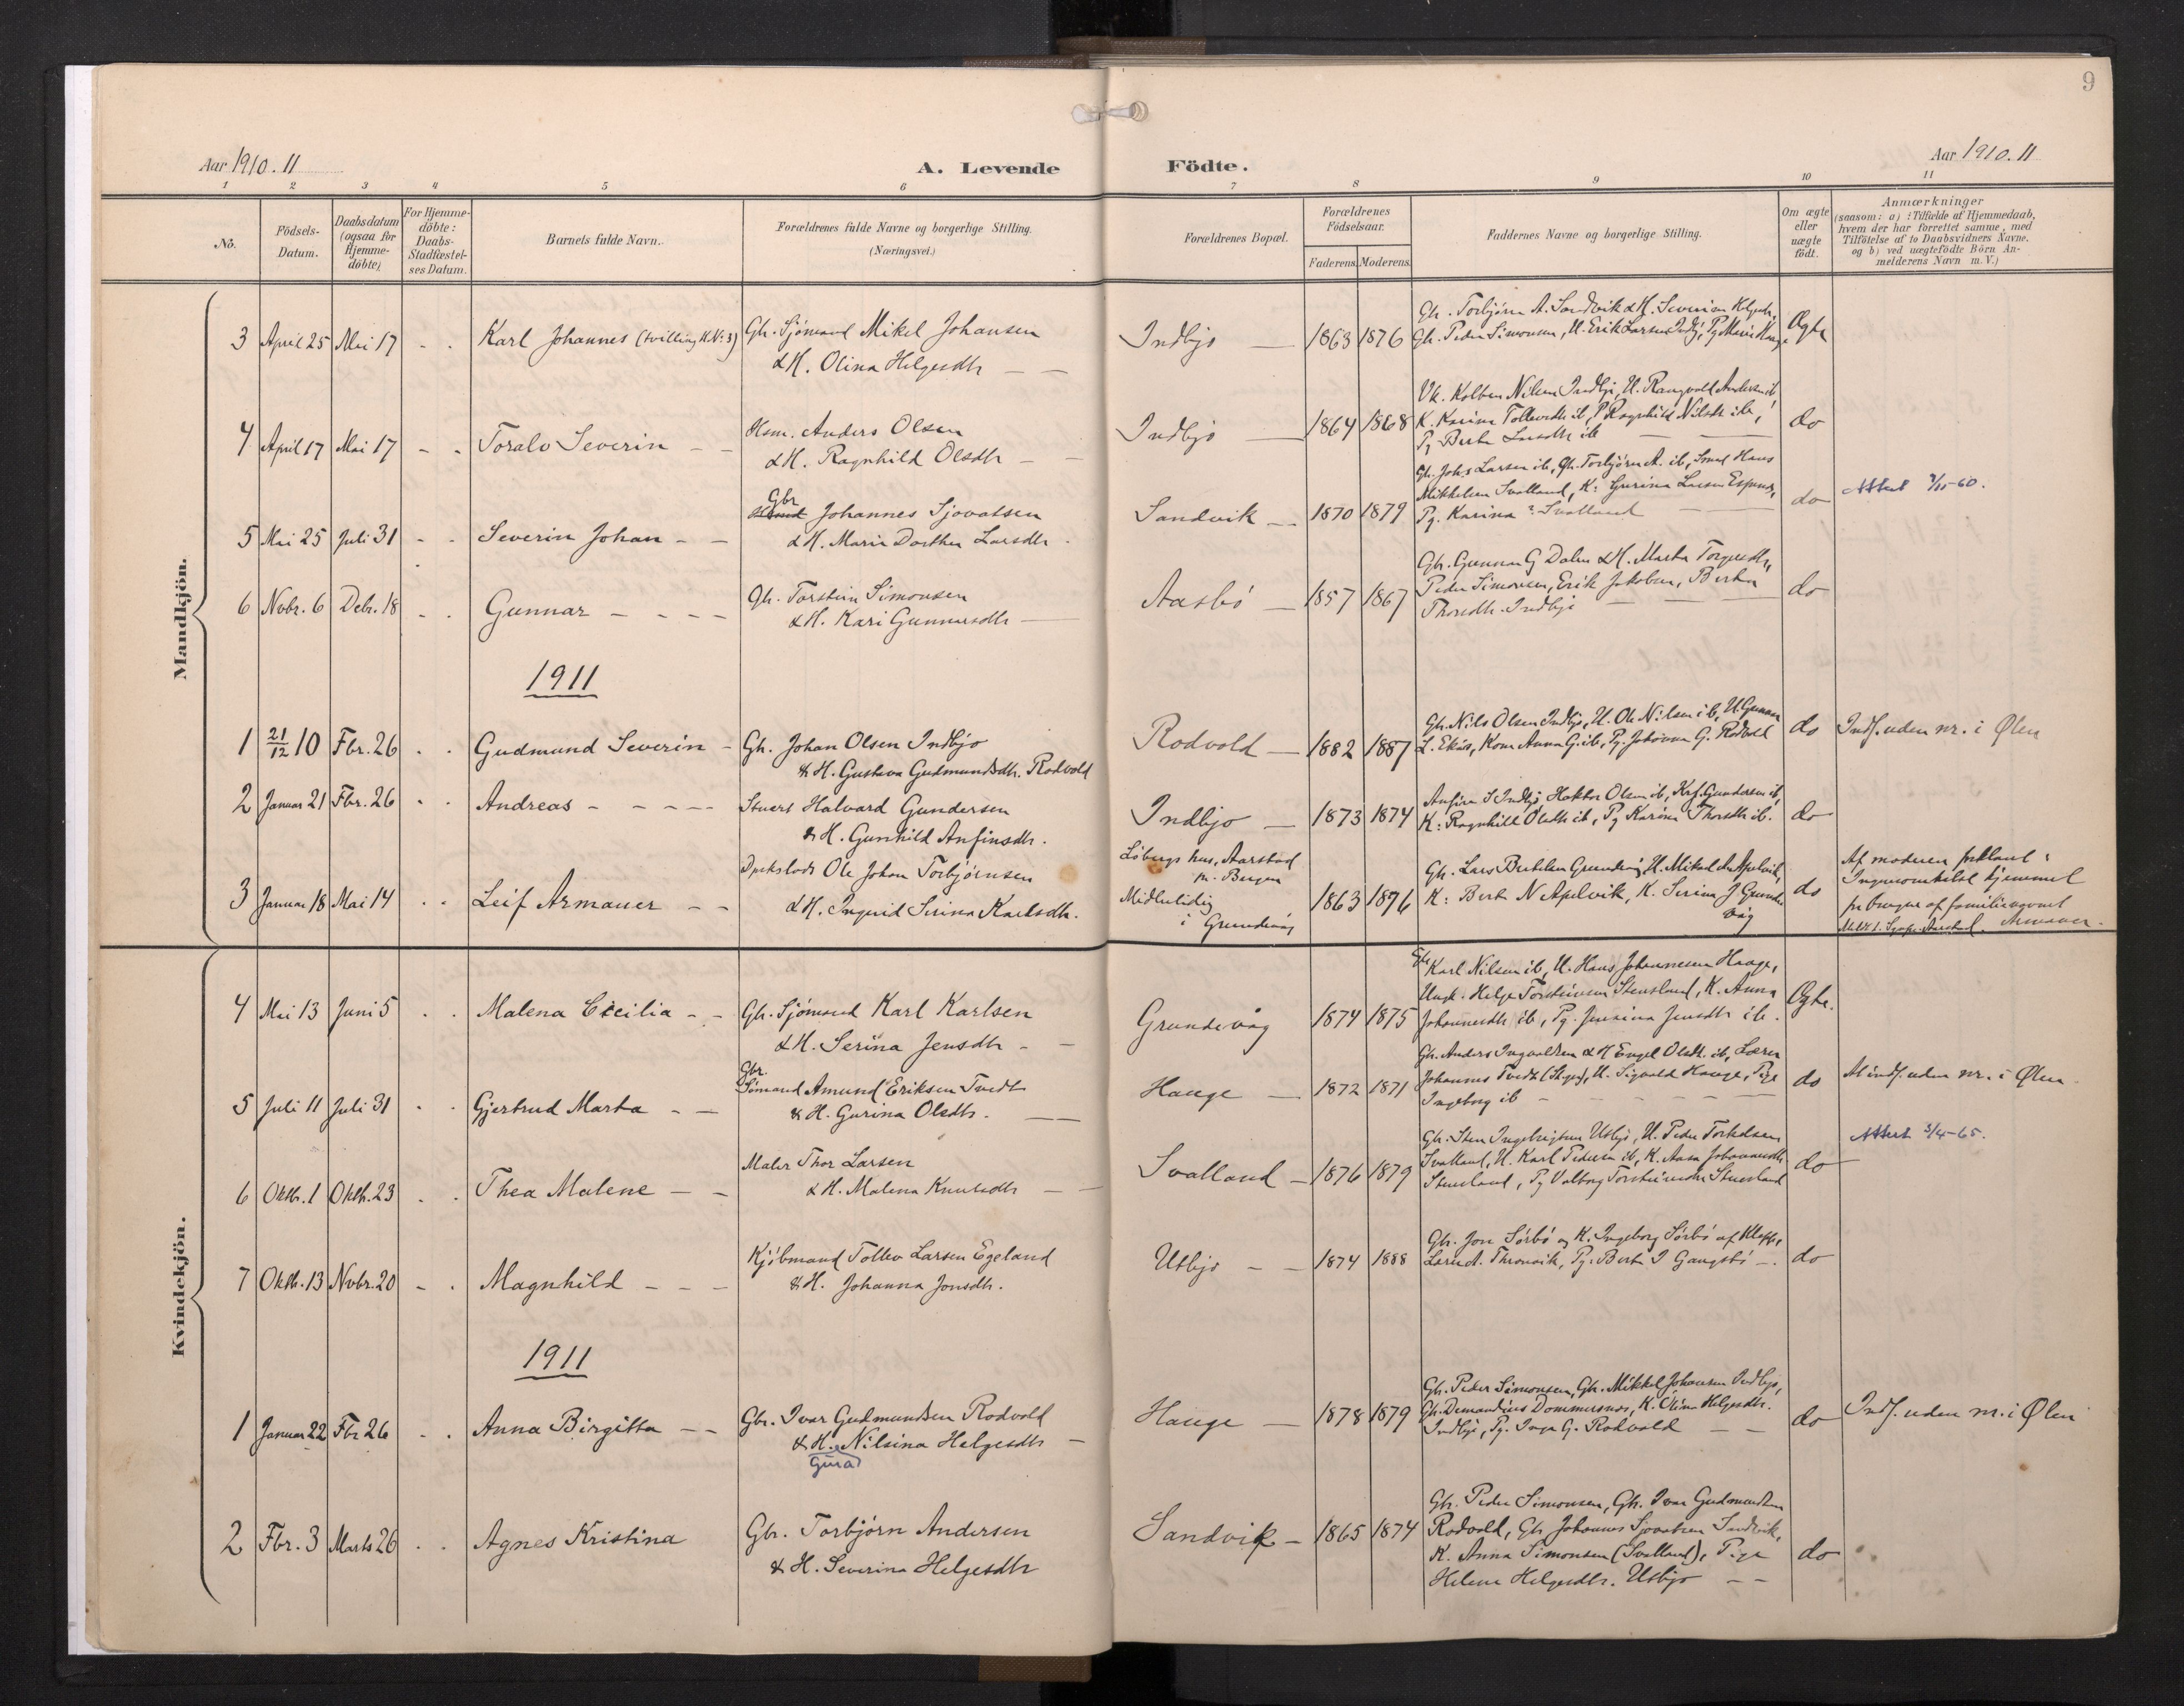 9
Aar 1910. 11
A. Levende Födte.
Aar 1910. 11
1 2 3 4 5 6 7 8 9 10 11
No.
Födsels-
Datum.
Daabsdatum
(ogsaa for
Hjemme-
döbte)
For Hjemme-
döbte:
Daabs-
Stadfæstel-
ses Datum.
Barnets fulde Navn.
Forældrenes fulde Navne og borgerlige Stilling.
(Næringsvei.)
Forældrenes Bopæl.
Forældrenes
Födselsaar.
Faderens. Moderens.
Faddernes Navne og borgerlige Stilling.
Om ægte
eller
uægte
födt.
Anmærkninger
(saasom: a) i Tilfælde af Hjemmedaab,
hvem der har forrettet samme, med
Tilföielse af to Daabsvidners Navne.
og b) ved uægtefödte Börn An-
melderens Navn m. V.)
Mandkjön.
3 April 25 Mai 17 - - Karl Johannes (tvilling K.No. 3) Gbr. Sjömand Mikel Johansen
& H. Olina Helgesdtr
Indbjo 1863 1876
Gbr. Torbjörn A. Sandvik & H. Severine Helgesdtr,
Gbr. Peder Simonsen, U. Erik Larsen Indbj, Pg Marie Haug
Ægte
4 April 17 Mai 17 - - Toralv Severin - - Hsm. Anders Olsen
& H. Ragnhild Olsdtr
Indbjo 1864 1868
Uk. Kolben Nilsen Indbjo, U. Rangvald Andersen ib,
K. Karina Tollevsdtr ib, P. Ragnhild Nilsdtr ib,
Pg Berta Larsdtr ib
do
5 Mai 25 Juli 31 - - Severin Johan - - Gbr
Johannes Sjovatsen
& H. Marie Dorthea Larsdtr.
Sandvik 1870 1879
Gbr. Johs Larsen ib, Gbr. Torbjörn A. ib, Smed Hans
Mikkelsen Svalland, K: Gurina Larsen Espenes,
Pg. Karina ? Svalland
do
Attest 7/11-60.
6 Novbr. 6 Debr. 18 - - Gunnar - - - - Gbr. Torstein Simonsen
& H. Kari Gunnarsdtr
Aasbö 1857 1867
Gbr. Gunnar G Dalen & H. Marta Torgersdtr,
Peder Simonsen, Erik Jakobsen, Berta
Thoresdtr. Indbjo
do
1911
1 21/12 10 Fbr. 26 - - Gudmund Severin - Gbr. Johan Olsen Indbjo
& H. Gustava Gudmundsdtr. Rodvold
Rodvold 1882 1887
Gbr. Nils Olsen Indbjo, U. Ole Nilsen ib, U. Gunnar
L. Ekås, Kone Anna G. ib, Pg. Johanna G. Rodvold
do Indf. uden nr. i Ølen
2 Januar 21 Fbr. 26 - - Andreas - - - - Stuert Halvard Gundersen
& H. Gunhild Anfinsdtr.
Indbjo 1873 1874
Anfin S Indbjo, Haktor Olsen ib, Kr. Gundersen ib,
K: Ragnhild Olsdtr ib, Pg Karina Thorsdtr ib.
do
3 Januar 18 Mai 14 - - Leif Armauer - - Ole Johan Torbjörnsen
& H. Ingrid Serina Karlsdtr.
Löbergs hus, Aarstad
pr. Bergen
Midlertidig
i Grundevåg
1863 1876
Gbr. Lars Bertelsen Grundevåg, U. Mikal A. Apelvik,
K: Berta N Apelvik, K. Serina J Grunde
våg
do
Af moderen forklaret:
Ingensomhelst hjemmel
for brugen af familienavnet
Armauer.
Kvindekjön.
4 Mai 13 Juni 5 - - Malena Cecilia - - Gbr. Sjömand Karl Karlsen
& H. Serina Jensdtr -
Grundevåg 1874 1875
Gbr Karl Nilsen ib, U. Hans Johannesen Hauge,
Ungk. Helge Torsteinsen Stensland, K. Anna
Johannesdtr ib, Pg. Jensina Jensdtr ib.
Ægte.
5 Juli 11 Juli 31 - - Gjertrud Marta - - Gbr.
Sömand Amund Eriksen Tvedt
& H. Gurina Olsdtr.
Hauge 1872 1871
Gbr. Anders Ingvaldsen & H Engel Olsdtr. ib, Lærer
Johannes Tvedt (Skger), U. Sigvald Hauge, Pige
Ingeborg ib
do Alindf. uden nr. i Ølen
6 Oktb. 1 Oktb. 23 - - Thea Malene - - Maler Thor Larsen
& H. Malena Knutsdtr
Svalland 1876 1879
Gbr. Sten Ingebrigtsen Utbjo, U. Peder Torkelsen
Svalland, U. Karl Pedersen ib, K. Aasa Johannesdtr
Stensland, Pg Valborg Torsteinsdtr Stensland
do
Attest 3/4-65.
7 Oktb. 13 Novbr. 20 - - Magnhild - - - Kjöbmand Tollev Larsen Egeland
& H. Johanna Jonsdtr.
Utbjo - - 1874 1888
Gbr. Jon Sörbö og K. Ingeborg Sörbö af Klepp,
Lærer A. Thronsvik, Pg. Berta I Gangstö -
do
1911
1 Januar 22 Fbr 26 - - Anna Birgitta - - Gbr. Ivar Gudmundsen Rodvold
& H. Nilsina Helgesdtr
Gurad
Hauge 1878 1879
Gbr. Peder Simonsen, Gbr. Mikkel Johansen Indbjo,
Gbr. Demandius Dommersnes, K. Olina Helgesdtr.
Indbjo, Pg. Inga G. Rodvold
do Indf. uden nr. i Ølen
2 Fbr. 3 Marts 26 - - Agnes Kristina Gbr. Torbjörn Andersen
& H. Severina Helgesdtr
Sandvik - 1865 1874
Gbr. Peder Simonsen, Gbr. Ivar Gudmundsen
Rodvold, Gbr Johannes Sjovatsen Sandvik,
K. Anna Simonsen (Svalland), Pige
Helene Helgesdtr. Utbjo
do